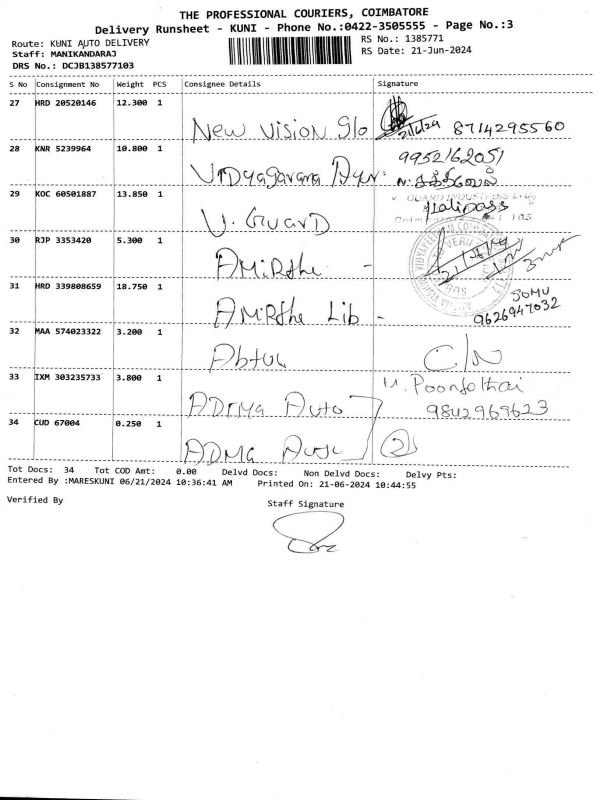 THE PROFESSIONAL COURIERS, COIMBATORE
Delivery Runsheet - KUNI - Phone No.:0422-3505555 - Page No.:3
Route: KUNI AUTO DELIVERY
RS No.: 1385771
Staff: MANIKANDARAJ
RS Date: 21-Jun-2024
DRS No.: DCJB138577103
S No Consignment No Weight PCS Consignee Details Signature
27 HRD 20520146 12.300 1
New Vision Glo 21/6/24 8714295560
28 KNR 5239964 10.800 1
9952162051
Vidyagarana Ayur.
29 KOC 60501887 13.850 1
V GUARD INDUSTRIES
V. Guard
30 RJP 3353420 5.300 1
AMirthe -
31 HRD 339808659 18.750 1
SOMU
AMirthe Lib - 9626947032
32 MAA 574023322 3.200 1
C/N
33 IXM 303235733 3.800 1
M. Poongothai
Adtya Auto 9842969623
34 CUD 67004 0.250 1
2
Tot Docs: 34 Tot COD Amt: 0.00 Delvd Docs: Non Delvd Docs: Delvy Pts:
Entered By :MARESKUNI 06/21/2024 10:36:41 AM Printed On: 21-06-2024 10:44:55
Verified By Staff Signature